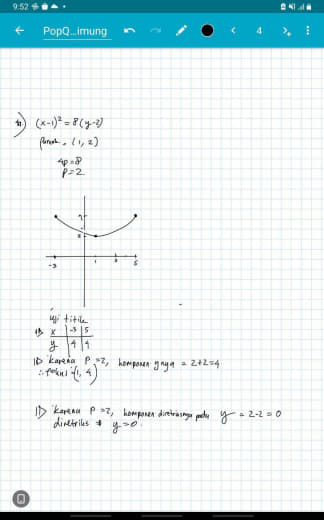 9:52
PopQ...imung
4
(x-1)² = 8(y-2)
Puncak = (1, 2)
4p = 8
p = 2
2
-3 1 5
uji titik
x | -3 | 5
y | 4 | 4
Karena p = 2, komponen y nya = 2+2 = 4
∴ fokus (1, 4)
Karena p = 2, komponen direktriksnya pada y = 2-2 = 0
direktriks y = 0.